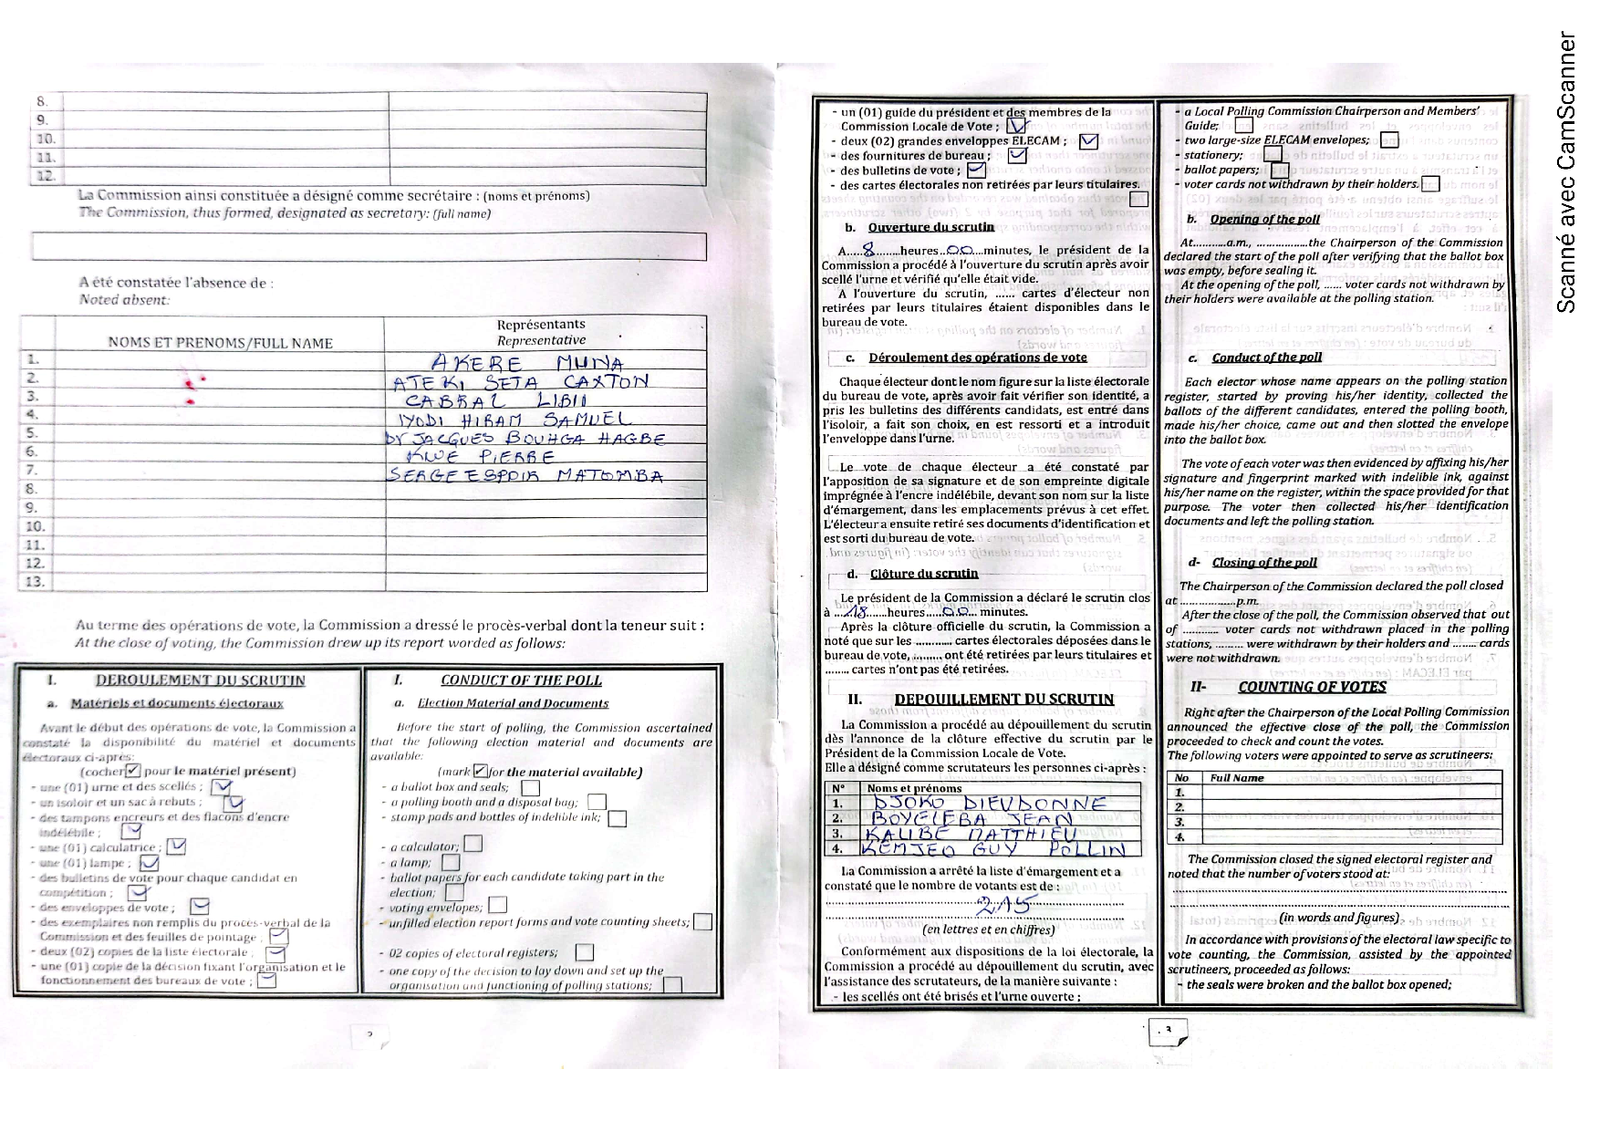 8.
9.
10.
11.
12.
La Commission ainsi constituée a désigné comme secrétaire : (noms et prénoms)
The Commission, thus formed, designated as secretary: (full name)
A été constatée l'absence de :
Noted absent:
NOMS ET PRENOMS/FULL NAME
Représentants
Representative
1. AKERE MUNA
2. ATEKI SETA CAXTON
3. CABRAL LIBII
4. IYODI HIRAM SAMUEL
5. Dr JACQUES BOUHGA HAGBE
6. KWE PIERRE
7. SERGE ESPOIR MATOMBA
8.
9.
10.
11.
12.
13.
Au terme des opérations de vote, la Commission a dressé le procès-verbal dont la teneur suit :
At the close of voting, the Commission drew up its report worded as follows:
I. DEROULEMENT DU SCRUTIN
a. Matériels et documents électoraux
Avant le début des opérations de vote, la Commission a
constaté la disponibilité du matériel et documents
électoraux ci-après:
(cocher ✓ pour le matériel présent)
- une (01) urne et des scellés ; ✓
- un isoloir et un sac à rebuts ; ✓
- des tampons encreurs et des flacons d'encre
indélébile ; ✓
- une (01) calculatrice ; ✓
- une (01) lampe ; ✓
- des bulletins de vote pour chaque candidat en
compétition ; ✓
- des enveloppes de vote ; ✓
- des exemplaires non remplis du procès-verbal de la
Commission et des feuilles de pointage ; ✓
- deux (02) copies de la liste électorale ; ✓
- une (01) copie de la décision fixant l'organisation et le
fonctionnement des bureaux de vote ; ✓
I. CONDUCT OF THE POLL
a. Election Material and Documents
Before the start of polling, the Commission ascertained
that the following election material and documents are
available:
(mark ✓ for the material available)
- a ballot box and seals;
- a polling booth and a disposal bag;
- stamp pads and bottles of indelible ink;
- a calculator;
- a lamp;
- ballot papers for each candidate taking part in the
election;
- voting envelopes;
- unfilled election report forms and vote counting sheets;
- 02 copies of electoral registers;
- one copy of the decision to lay down and set up the
organisation and functioning of polling stations;
2
- un (01) guide du président et des membres de la
Commission Locale de Vote ; ✓
- deux (02) grandes enveloppes ELECAM ; ✓
- des fournitures de bureau ; ✓
- des bulletins de vote ; ✓
- des cartes électorales non retirées par leurs titulaires.
b. Ouverture du scrutin
A.....8......heures..00...minutes, le président de la
Commission a procédé à l'ouverture du scrutin après avoir
scellé l'urne et vérifié qu'elle était vide.
A l'ouverture du scrutin, ...... cartes d'électeur non
retirées par leurs titulaires étaient disponibles dans le
bureau de vote.
c. Déroulement des opérations de vote
Chaque électeur dont le nom figure sur la liste électorale
du bureau de vote, après avoir fait vérifier son identité, a
pris les bulletins des différents candidats, est entré dans
l'isoloir, a fait son choix, en est ressorti et a introduit
l'enveloppe dans l'urne.
Le vote de chaque électeur a été constaté par
l'apposition de sa signature et de son empreinte digitale
imprégnée à l'encre indélébile, devant son nom sur la liste
d'émargement, dans les emplacements prévus à cet effet.
L'électeur a ensuite retiré ses documents d'identification et
est sorti du bureau de vote.
d. Clôture du scrutin
Le président de la Commission a déclaré le scrutin clos
à ...18......heures.....00.... minutes.
Après la clôture officielle du scrutin, la Commission a
noté que sur les ............ cartes électorales déposées dans le
bureau de vote, ......... ont été retirées par leurs titulaires et
........ cartes n'ont pas été retirées.
II. DEPOUILLEMENT DU SCRUTIN
La Commission a procédé au dépouillement du scrutin
dès l'annonce de la clôture effective du scrutin par le
Président de la Commission Locale de Vote.
Elle a désigné comme scrutateurs les personnes ci-après :
N° Noms et prénoms
1. DJOKO DIEUDONNE
2. BOYELEBA JEAN
3. KALIBE MATTHIEU
4. KEMJEO GUY POLLIN
La Commission a arrêté la liste d'émargement et a
constaté que le nombre de votants est de :
215
(en lettres et en chiffres)
Conformément aux dispositions de la loi électorale, la
Commission a procédé au dépouillement du scrutin, avec
l'assistance des scrutateurs, de la manière suivante :
- les scellés ont été brisés et l'urne ouverte ;
- a Local Polling Commission Chairperson and Members'
Guide;
- two large-size ELECAM envelopes;
- stationery;
- ballot papers;
- voter cards not withdrawn by their holders.
b. Opening of the poll
At...........a.m., .................the Chairperson of the Commission
declared the start of the poll after verifying that the ballot box
was empty, before sealing it.
At the opening of the poll, ...... voter cards not withdrawn by
their holders were available at the polling station.
c. Conduct of the poll
Each elector whose name appears on the polling station
register, started by proving his/her identity, collected the
ballots of the different candidates, entered the polling booth,
made his/her choice, came out and then slotted the envelope
into the ballot box.
The vote of each voter was then evidenced by affixing his/her
signature and fingerprint marked with indelible ink, against
his/her name on the register, within the space provided for that
purpose. The voter then collected his/her identification
documents and left the polling station.
d- Closing of the poll
The Chairperson of the Commission declared the poll closed
at ..................p.m.
After the close of the poll, the Commission observed that out
of ........... voter cards not withdrawn placed in the polling
stations, ......... were withdrawn by their holders and ........ cards
were not withdrawn.
II- COUNTING OF VOTES
Right after the Chairperson of the Local Polling Commission
announced the effective close of the poll, the Commission
proceeded to check and count the votes.
The following voters were appointed to serve as scrutineers:
No Full Name
1.
2.
3.
4.
The Commission closed the signed electoral register and
noted that the number of voters stood at:
(in words and figures)
In accordance with provisions of the electoral law specific to
vote counting, the Commission, assisted by the appointed
scrutineers, proceeded as follows:
- the seals were broken and the ballot box opened;
3
Scanné avec CamScanner